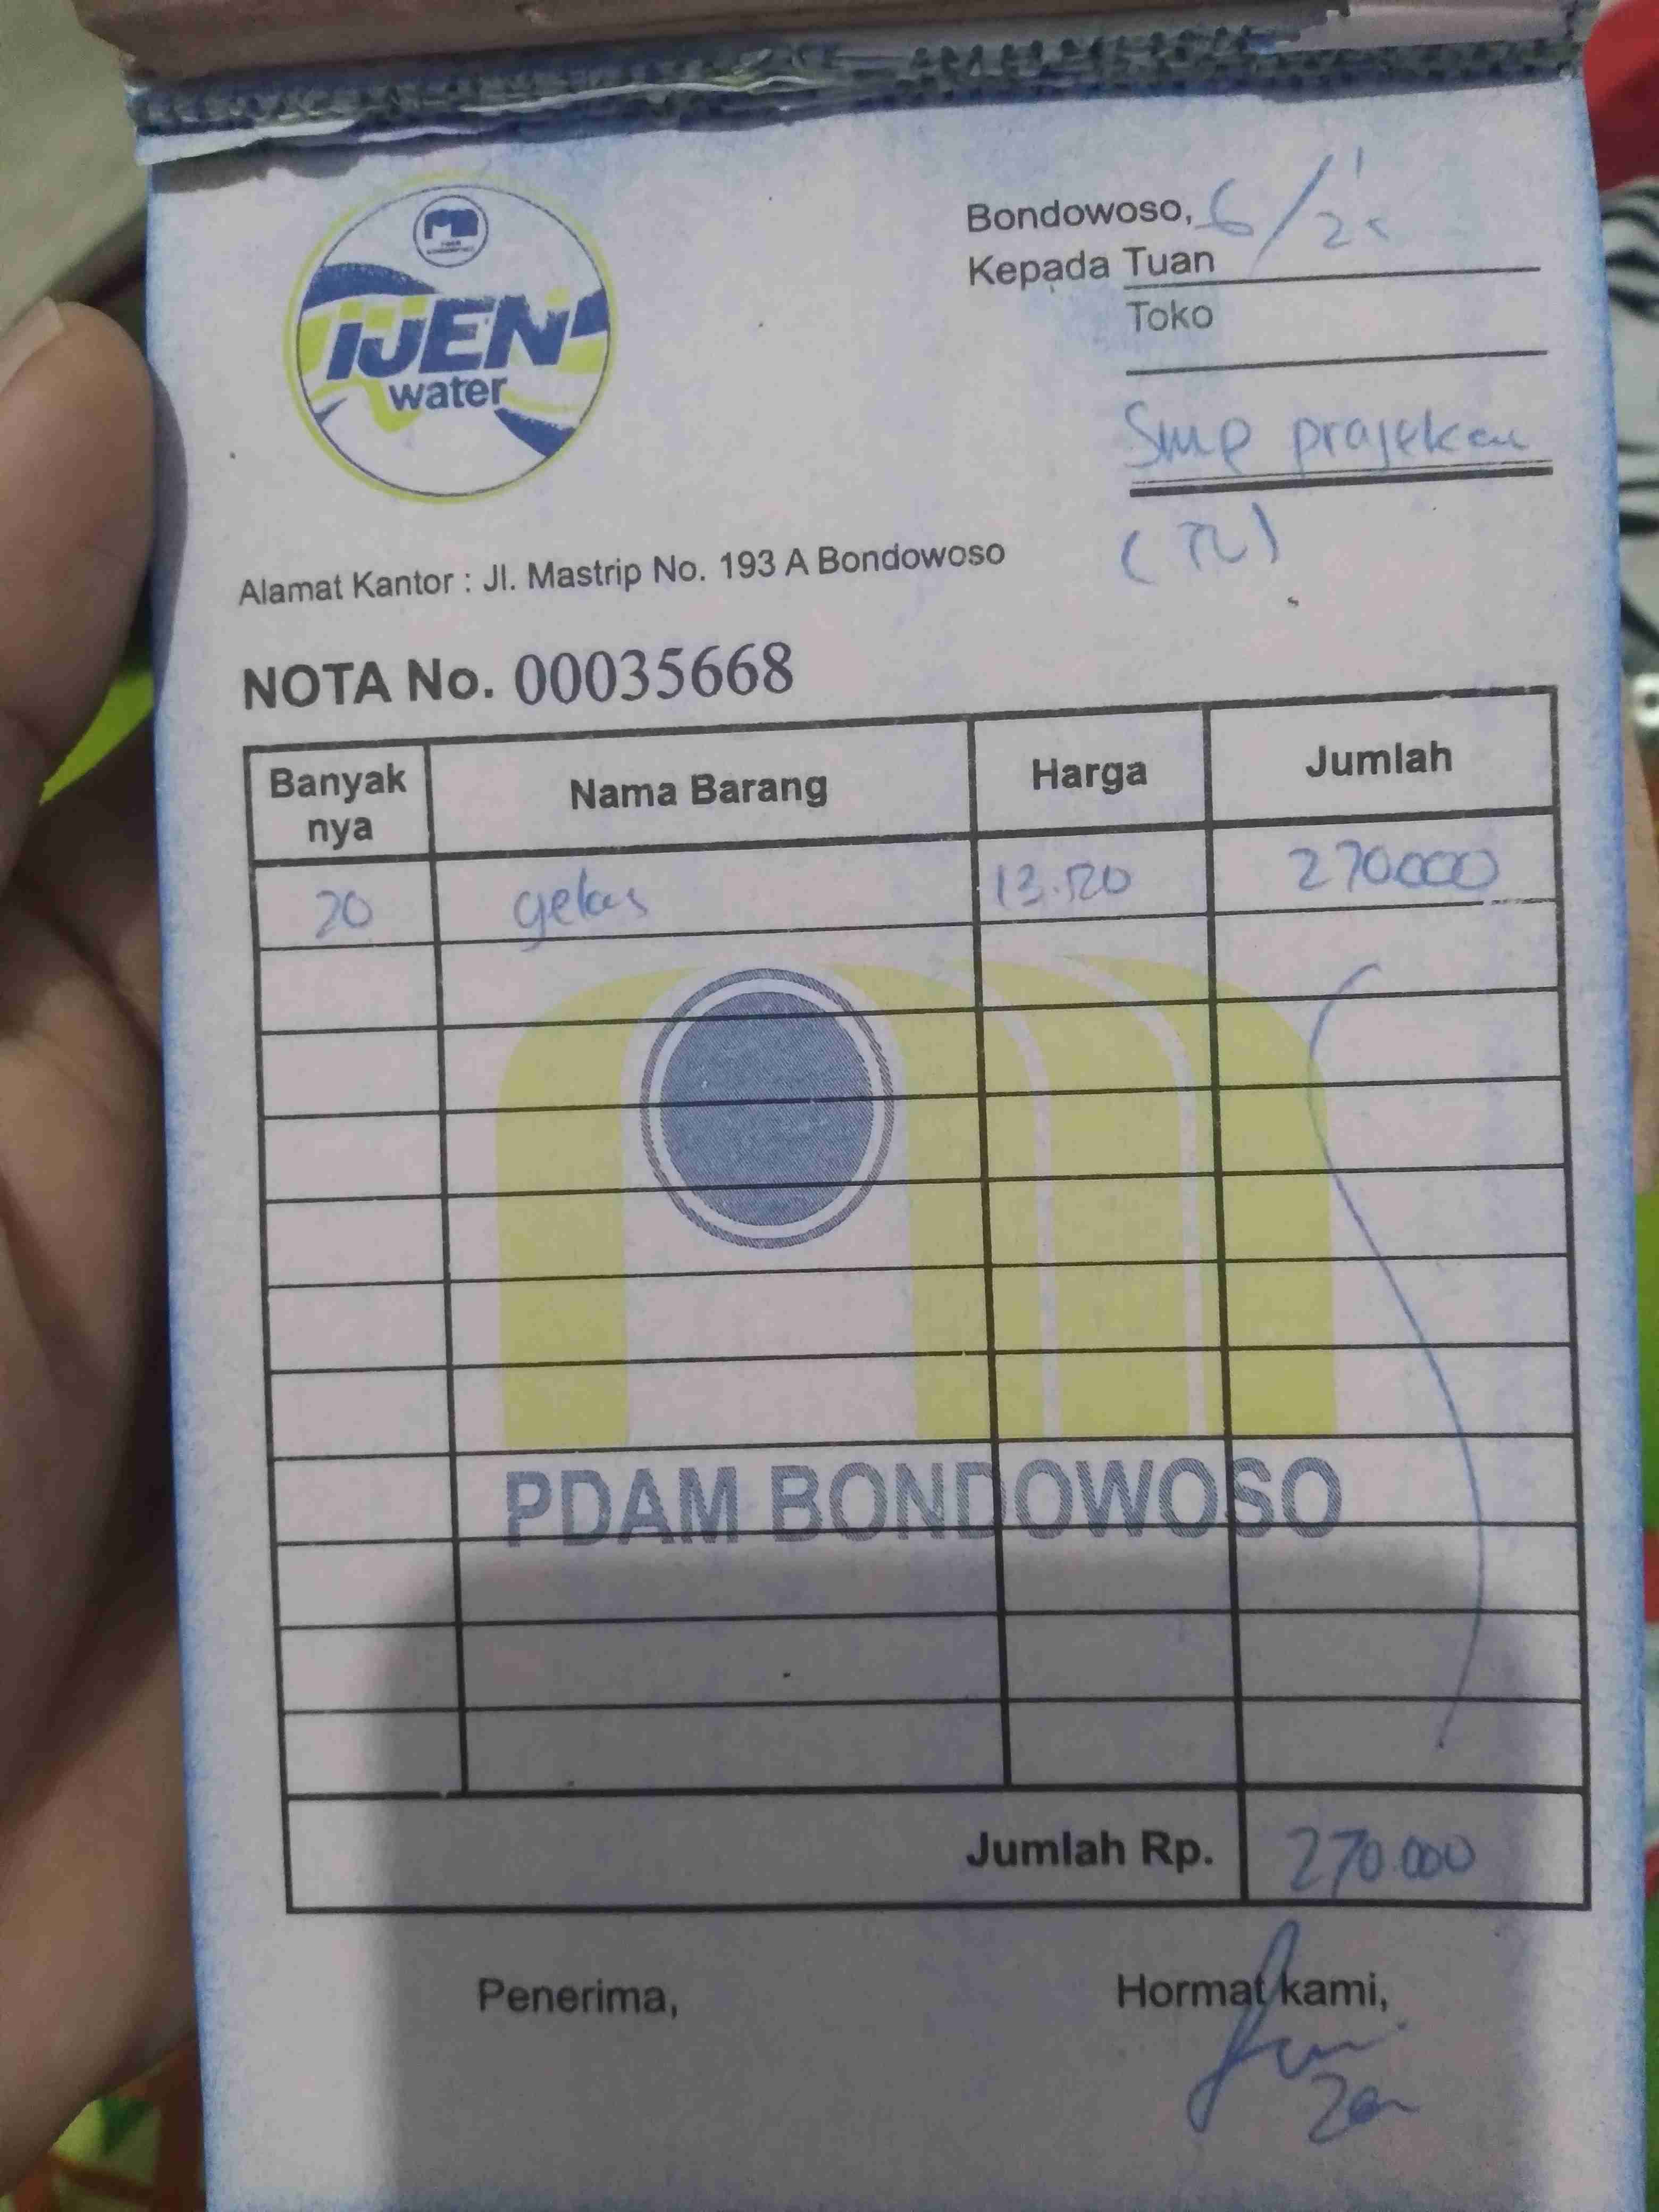 IJEN
water
Bondowoso, 6/1 25
Kepada Tuan
Toko
Smp prajekan
(TL)
Alamat Kantor : Jl. Mastrip No. 193 A Bondowoso
NOTA No. 00035668
Banyak nya Nama Barang Harga Jumlah
20 gelas 13.500 270.000
PDAM BONDOWOSO
Jumlah Rp. 270.000
Penerima, Hormat kami,